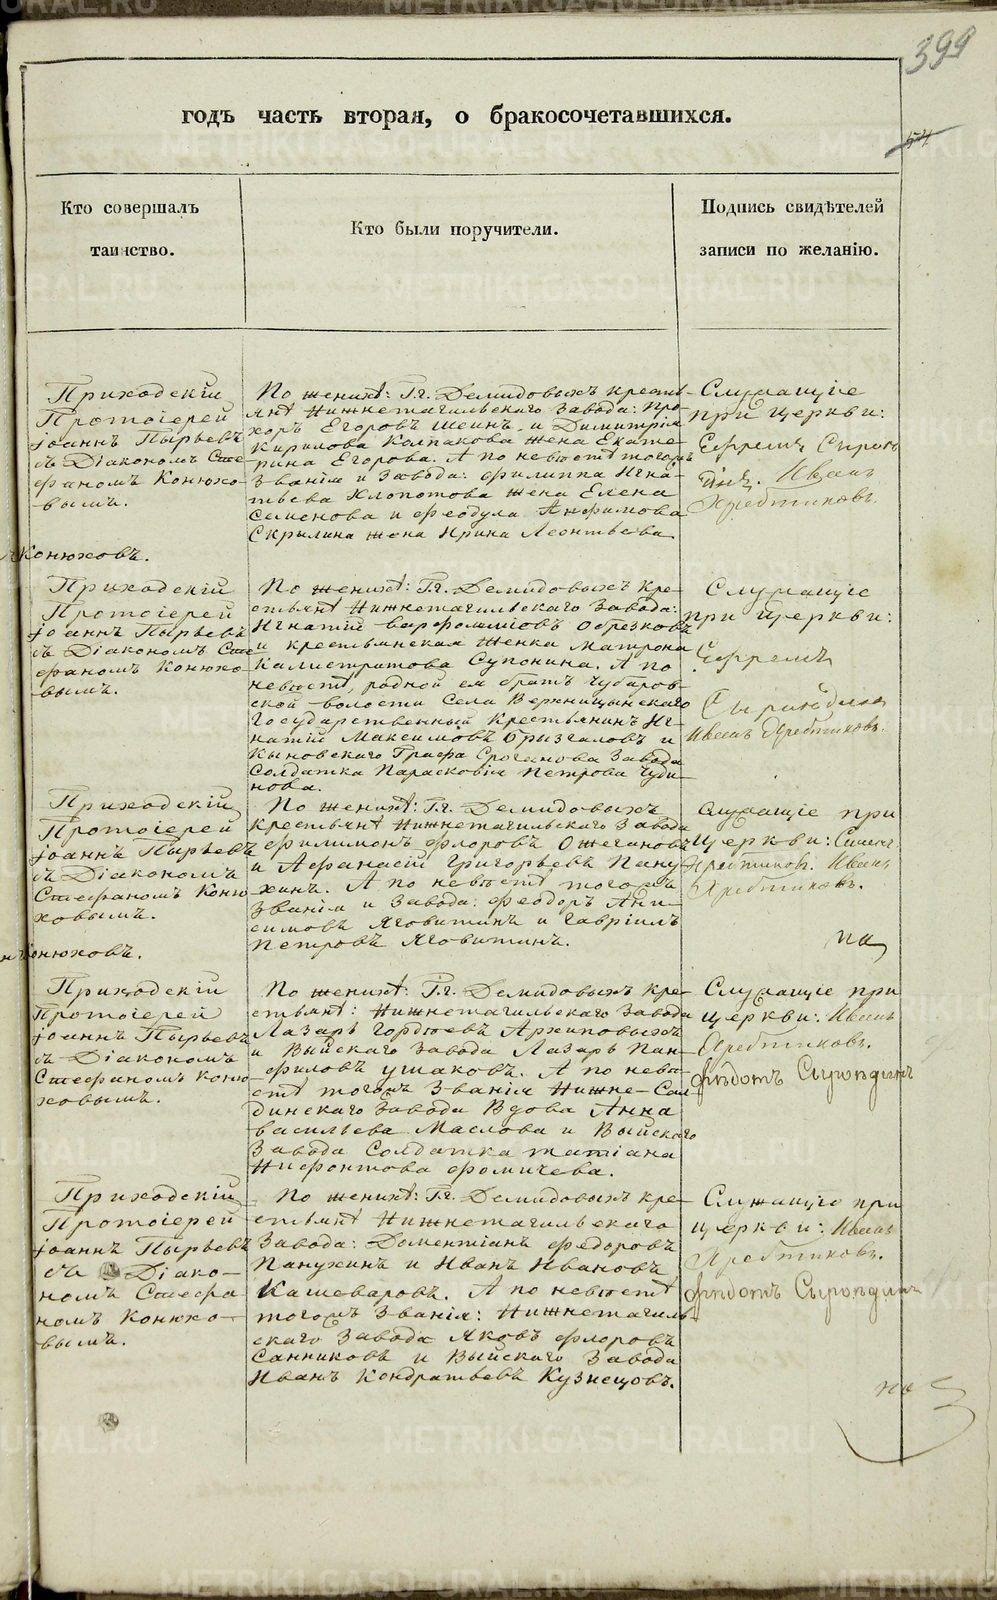 399
годъ часть вторая, о бракосочетавшихся.
54
Кто совершалъ
таинство.
Кто были поручители.
Подпись свидѣтелей
записи по желанію.
Приходскій
Протоіерей
Іоаннъ Пырьевъ
съ Діакономъ Сте
фаномъ Конюхо-
вымъ.
Конюховъ.
По женихѣ: Г.г. Демидовыхъ кресть-
янѣ Нижнетагильскаго Завода: Про-
хоръ Егоровъ Шеинъ и Димитрія
Кирилова Колпакова жена Екате-
рина Егорова. А по невѣстѣ тогожъ
Званія и Завода: Филиппа Игна-
тьева Хлопотова жена Елена
Семенова и Феодула Анфимова
Скрылина жена Ирина Леонтьева
Служащіе
при церкви:
Ефремъ Сыров
Иванъ
Хребтиковъ.
Приходскій
Протоіерей
Іоаннъ Пырьевъ
съ Діакономъ Сте
фаномъ Конюхо-
вымъ.
По женихѣ: Г.г. Демидовыхъ кре-
стьянѣ Нижнетагильскаго Завода:
Игнатій Варфоломіовъ Обрезковъ
и крестьянская Женка Матрона
Калистратова Супонина. А по
невѣстѣ, родной ея братъ Чубаров-
ской волости Села Вержницынскаго
Государственный Крестьянинъ Иг-
натій Максимовъ Брызгаловъ и
Кыновскаго Графа Строганова Завода
Солдатка Парасковія Петрова Чуди-
нова.
Служащіе
при Церкви:
Ефремъ
Иванъ Хребтиковъ.
Приходскій
Протоіерей
Іоаннъ Пырьевъ
съ Діакономъ
Стефаномъ Коню
ховымъ.
Конюховъ.
По женихѣ: Г.г. Демидовыхъ
Крестьянѣ Нижнетагильскаго Завода
Филимонъ Флоровъ Ожегановъ
и Афанасій Григорьевъ Пану-
хинъ. А по невѣстѣ тогожъ
Званія и Завода: Феодоръ Ани-
симовъ Яговитинъ и Гавріилъ
Петровъ Яговитинъ.
Служащіе при
Церкви:
Хребтиковъ. Иванъ
Хребтиковъ.
по
Приходскій
Протоіерей
Іоаннъ Пырьевъ
съ Діакономъ
Стефаномъ Коню
ховымъ.
По женихѣ: Г.г. Демидовыхъ кре-
стьянѣ: Нижнетагильскаго Завода
Лазарь Гордѣевъ Архиповыхъ
и Выйскаго Завода Лазарь Пан-
филовъ Ушаковъ. А по невѣ-
стѣ тогожъ Званія Нижне-Сал-
динскаго Завода Вдова Анна
Васильева Маслова и Выйскаго
Завода Солдатка Татіана
Нифонтова Фомичева.
Служащіе при
церкви: Иванъ
Хребтиковъ.
Ѳедотъ Сыропдинъ
Приходскій
Протоіерей
Іоаннъ Пырьевъ
съ Діако-
номъ Стефа
номъ Конюхо-
вымъ.
По женихѣ: Г.г. Демидовыхъ кре-
стьянѣ Нижнетагильскаго
Завода: Доментіанъ Федоровъ
Панухинъ и Иванъ Ивановъ
Кашеваровъ. А по невѣстѣ
тогожъ Званія: Нижнетагиль-
скаго Завода Яковъ Флоровъ
Санниковъ и Выйскаго Завода
Иванъ Кондратьевъ Кузнецовъ.
Служащіе при
церкви: Иванъ
Хребтиковъ.
по
METRIKI.GASO-URAL.RU